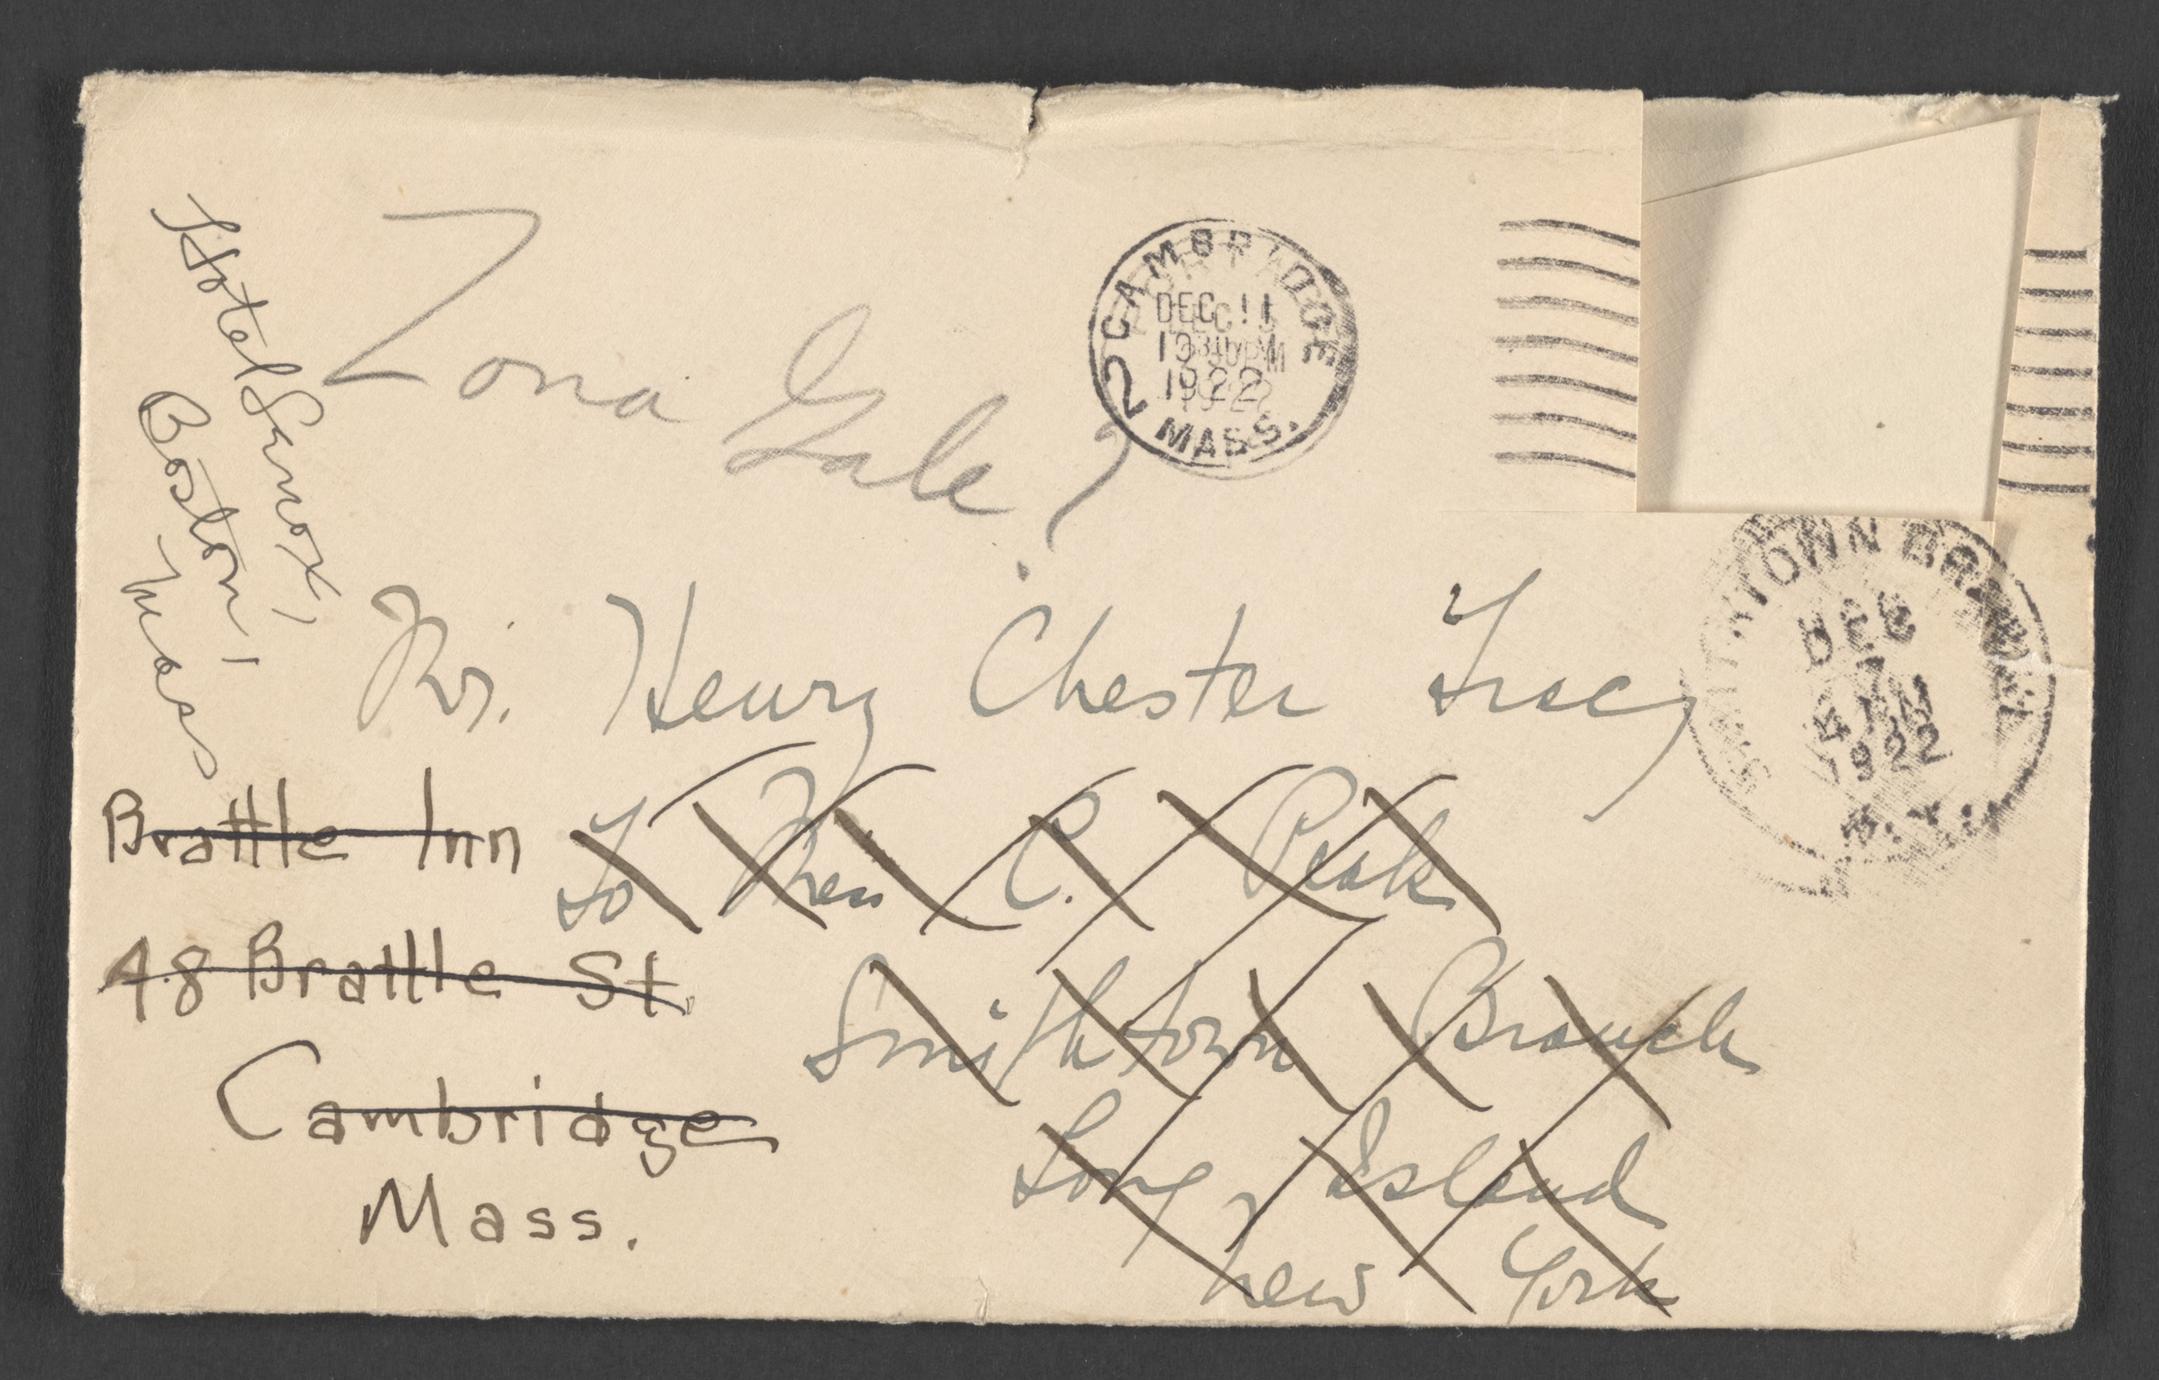 Zona Gale?
CAMBRIDGE
DEC 11
1922
2
MASS.
Hotel Lenox,
Boston,
Mass
SMITHTOWN BRANCH
DEC
7
4 PM
1922
N.Y.
Mr. Henry Chester Tracy
To Mrs C. Peak
Smithtown Branch
Long Island
New York
Brattle Inn
48 Brattle St.
Cambridge
Mass.